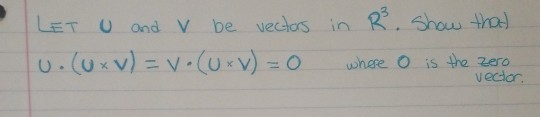 LET U and V be vectors in R³. Show that
U·(U×V) = V·(U×V) = 0 where 0 is the zero
vector.